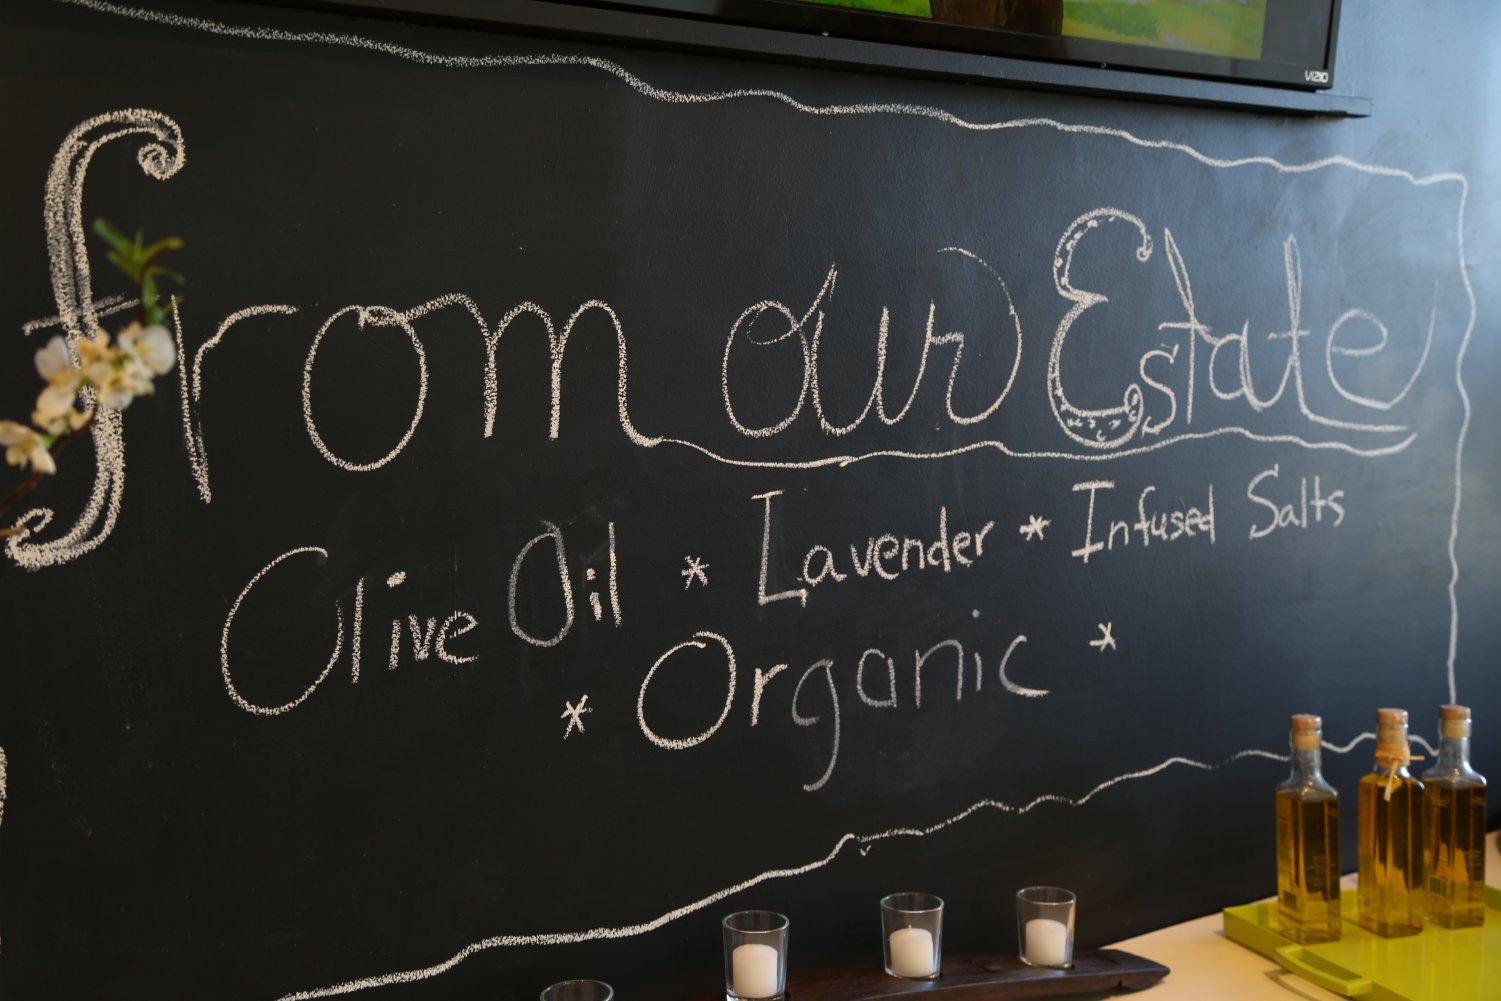 VIZIO
from our Estate
Olive Oil * Lavender * Infused Salts
* Organic *